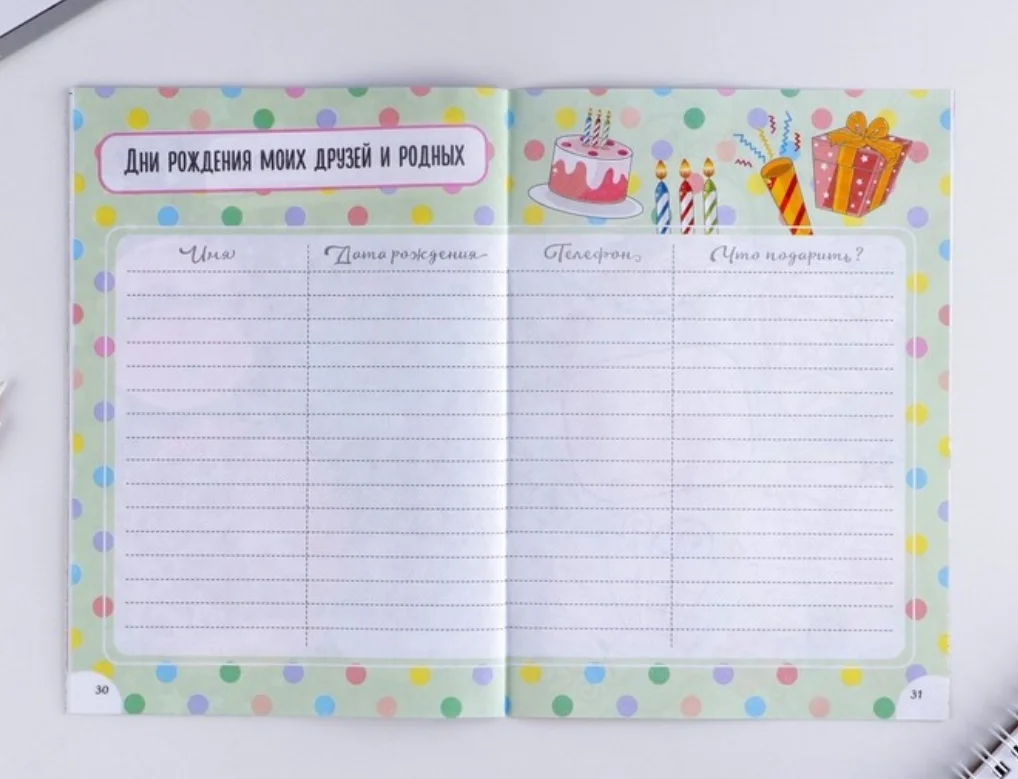 Дни рождения моих друзей и родных
Имя Дата рождения Телефон Что подарить?
30 31